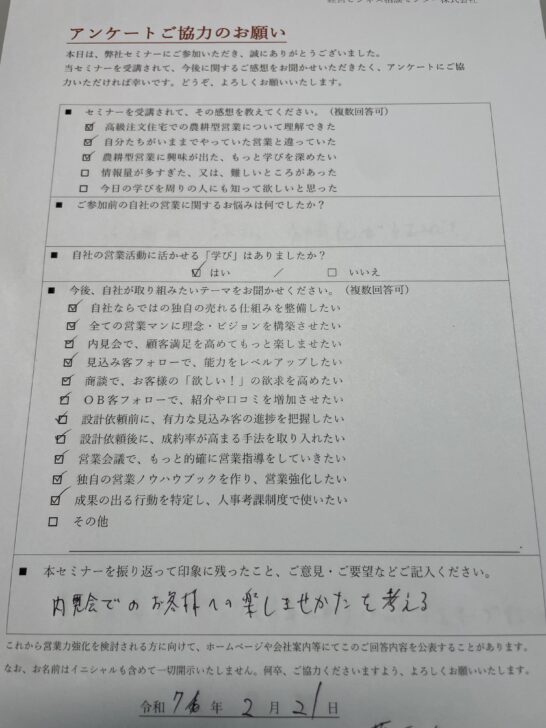 アンケートご協力のお願い
本日は、弊社セミナーにご参加いただき、誠にありがとうございました。
当セミナーを受講されて、今後に関するご感想をお聞かせいただきたく、アンケートにご協
力いただければ幸いです。どうぞ、よろしくお願いいたします。
■ セミナーを受講されて、その感想を教えてください。(複数回答可)
☑ 高級注文住宅での農耕型営業について理解できた
☑ 自分たちがいままでやっていた営業と違っていた
☑ 農耕型営業に興味が出た、もっと学びを深めたい
□ 情報量が多すぎた、又は、難しいところがあった
□ 今日の学びを周りの人にも知って欲しいと思った
■ ご参加前の自社の営業に関するお悩みは何でしたか?
■ 自社の営業活動に活かせる「学び」はありましたか?
☑ はい / □ いいえ
■ 今後、自社が取り組みたいテーマをお聞かせください。(複数回答可)
☑ 自社ならではの独自の売れる仕組みを整備したい
☑ 全ての営業マンに理念・ビジョンを構築させたい
☑ 内見会で、顧客満足を高めてもっと楽しませたい
☑ 見込み客フォローで、能力をレベルアップしたい
☑ 商談で、お客様の「欲しい!」の欲求を高めたい
☑ OB客フォローで、紹介や口コミを増加させたい
☑ 設計依頼前に、有力な見込み客の進捗を把握したい
☑ 設計依頼後に、成約率が高まる手法を取り入れたい
☑ 営業会議で、もっと的確に営業指導をしていきたい
☑ 独自の営業ノウハウブックを作り、営業強化したい
☑ 成果の出る行動を特定し、人事考課制度で使いたい
□ その他
■ 本セミナーを振り返って印象に残ったこと、ご意見・ご要望などご記入ください。
内見会でのお客様への楽しませかたを考える
これから営業力強化を検討される方に向けて、ホームページや会社案内等にてこのご回答内容を公表することがあります。
なお、お名前はイニシャルも含めて一切開示いたしません。何卒、ご協力くださいますよう、よろしくお願いいたします。
令和 年 2 月 21 日